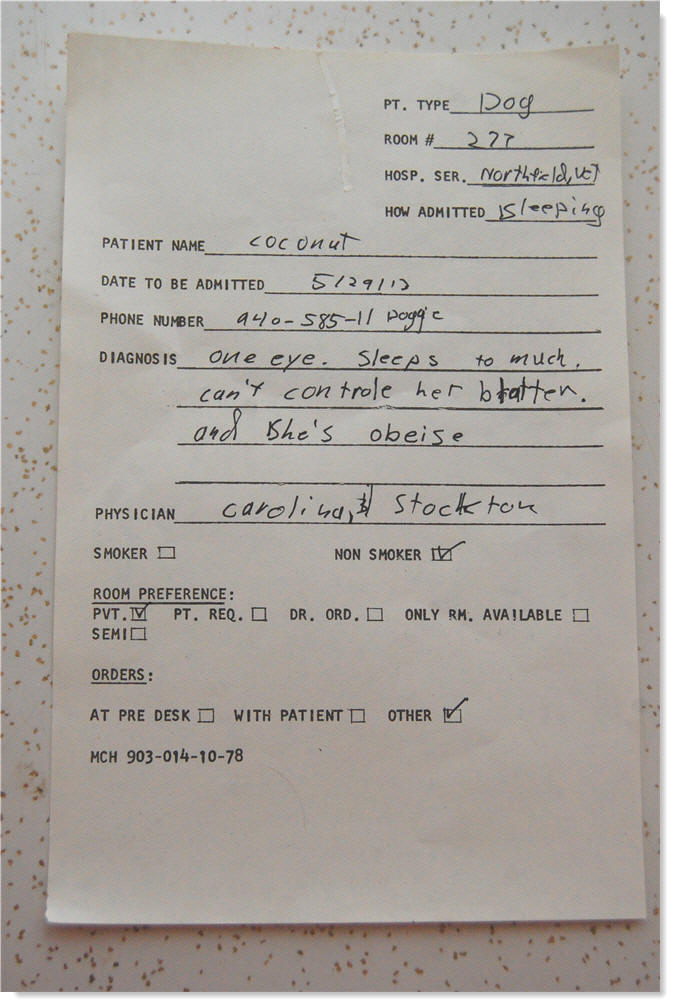 PT. TYPE Dog
ROOM # 277
HOSP. SER. Northfield, Vet
HOW ADMITTED Sleeping
PATIENT NAME coconut
DATE TO BE ADMITTED 5/29/13
PHONE NUMBER 940-585-11 Doggie
DIAGNOSIS one eye. Sleeps to much,
can't controle her blatter.
and She's obeise
PHYSICIAN carolina, Stockton
SMOKER ☐ NON SMOKER ☑
ROOM PREFERENCE:
PVT. ☑ PT. REQ. ☐ DR. ORD. ☐ ONLY RM. AVAILABLE ☐
SEMI ☐
ORDERS:
AT PRE DESK ☐ WITH PATIENT ☐ OTHER ☑
MCH 903-014-10-78